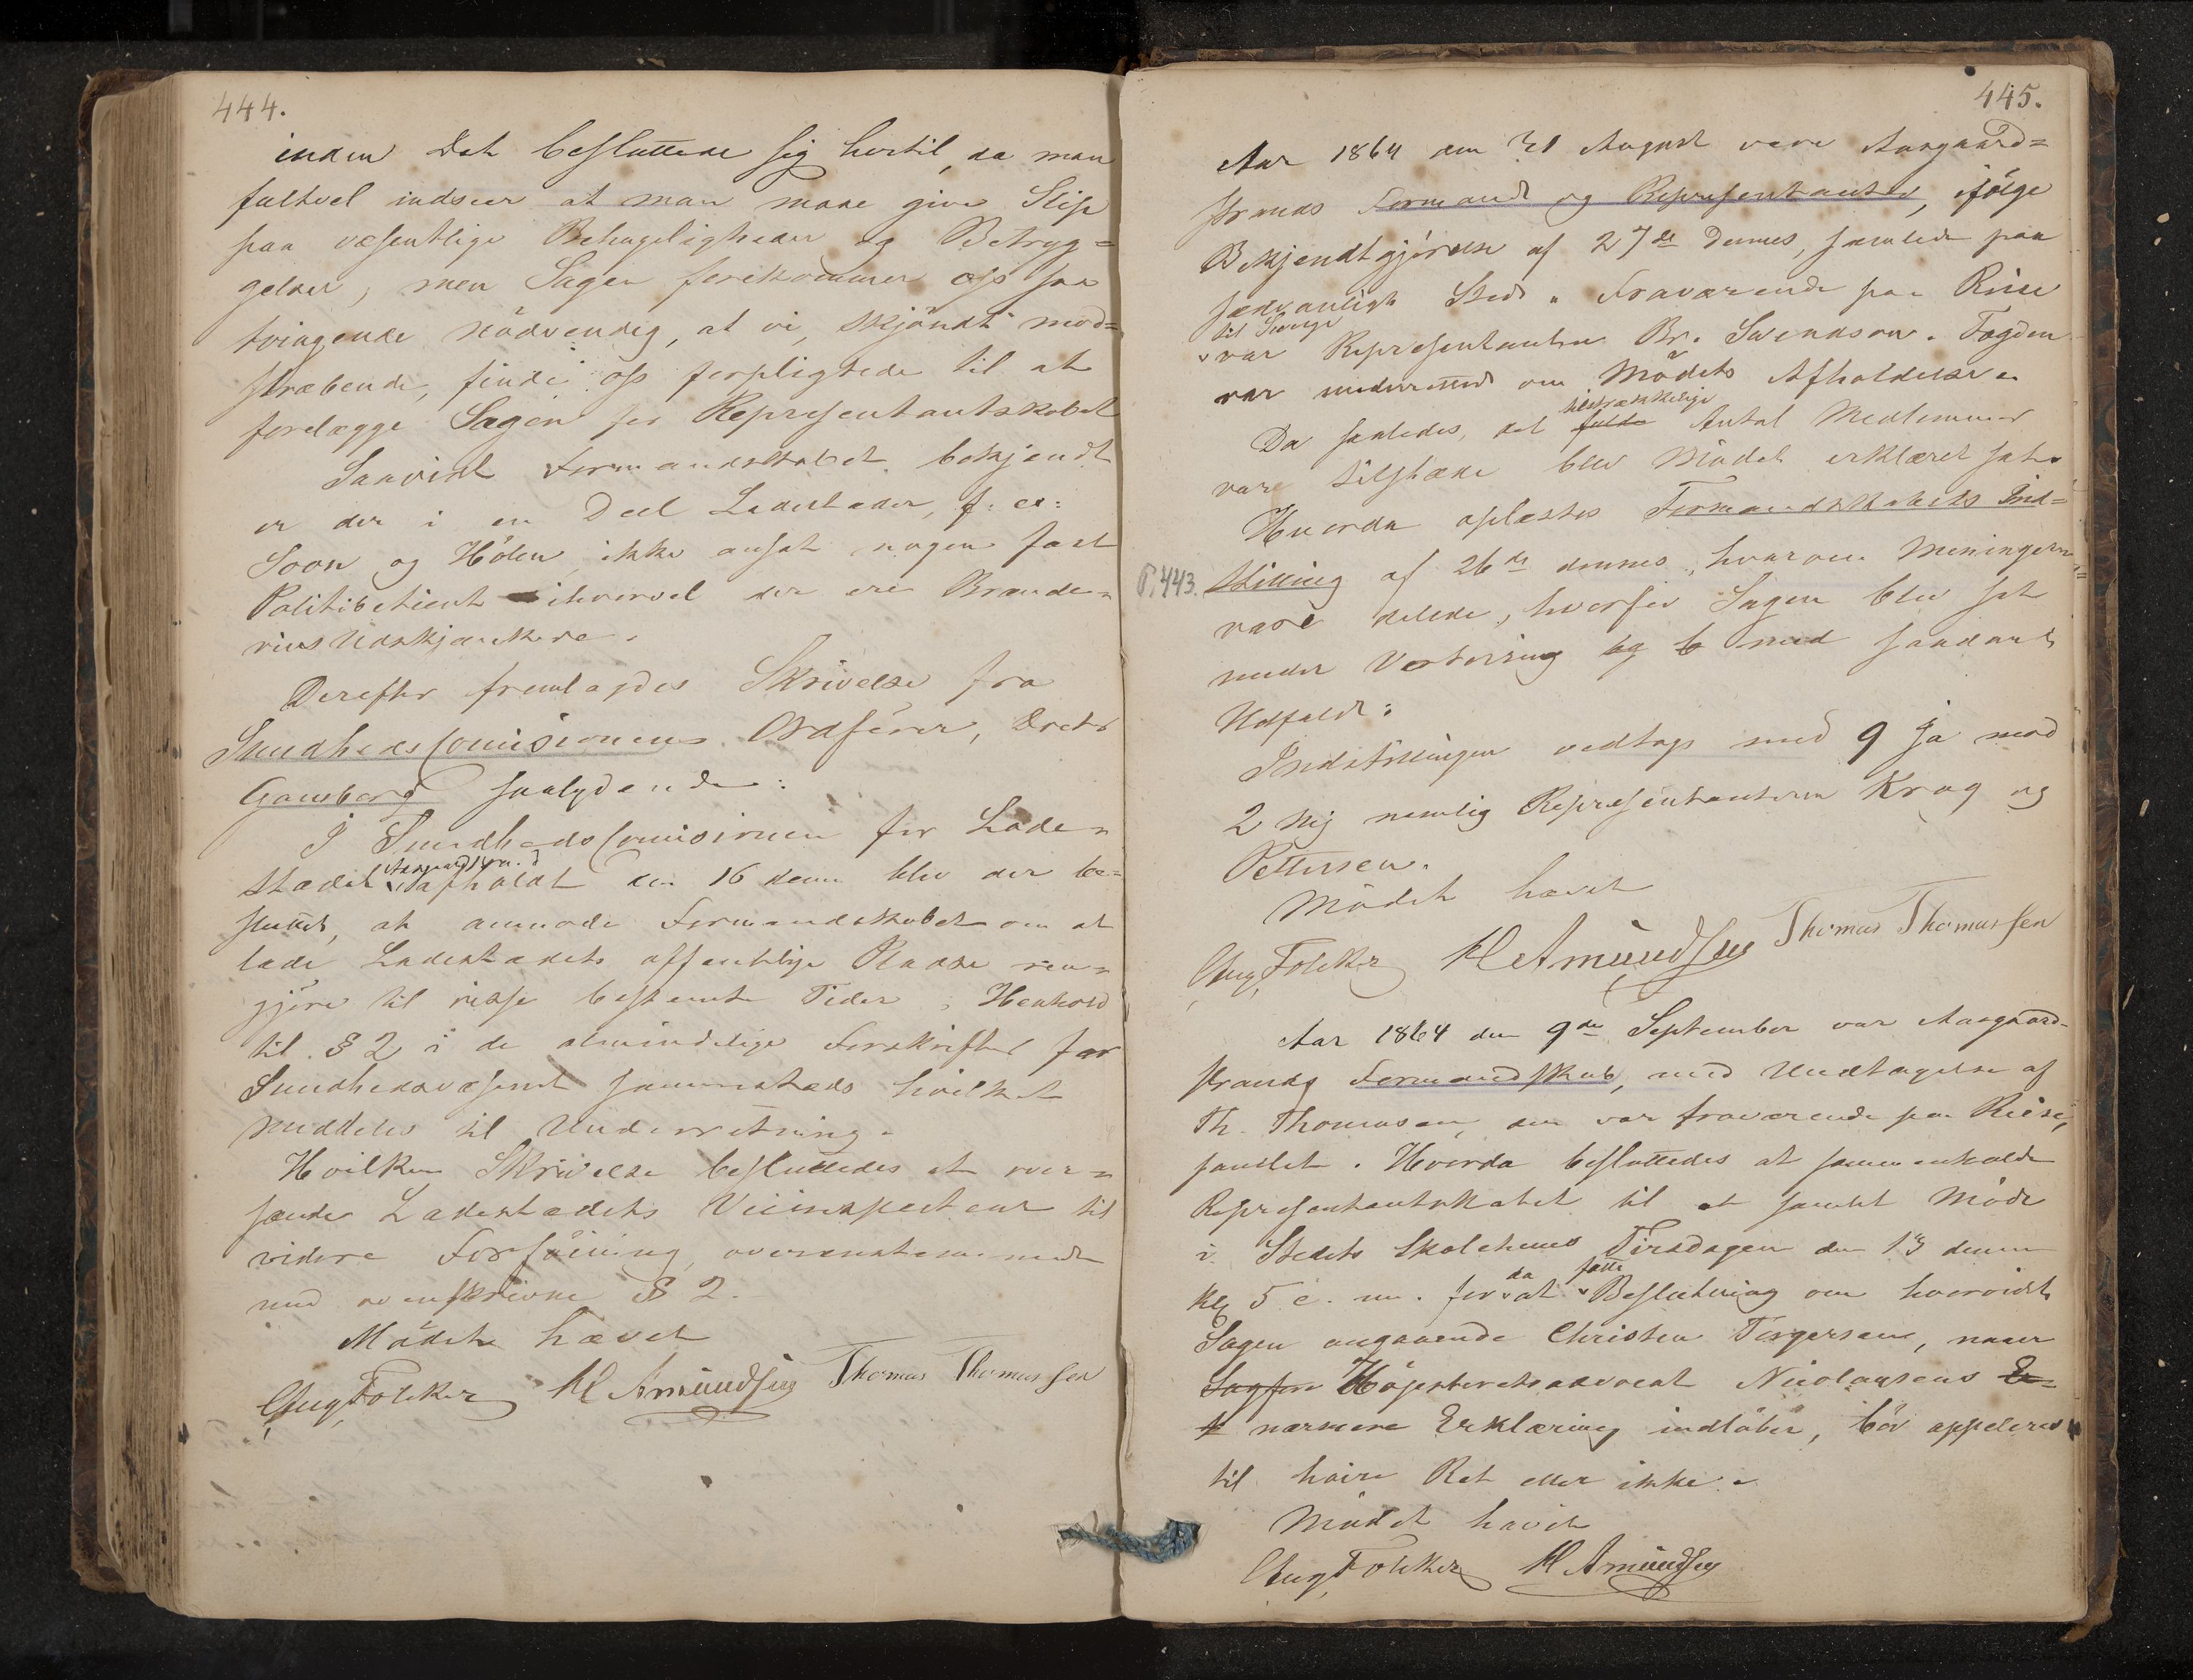 444.
inden det besluttede sig hertil, da man
fultvel indseer at man maae give Slip
paa væsentlige Behageligheder og Betryg=
gelser, men Sagen forekommer oss saa
tvingende nödvendig, at vi, skjöndt mod=
stræbende, finde oss forpligtede til at
forelægge Sagen for Repræsentantskabet
Saavidt Formandskabet bekjendt
er der i en Deel Ladesteder, f. ex:
Soon og Hölen ikke ansat nogen fast
Politibetient ihvorvel der ere Brænde=
viinsUdskjænkere.
Derefter fremlagdes Skrivelse fra
Sundhedscomisionens Ordförer, Doctor
Gausberg saalydende:
I Sundhedscomisionen for Lade=
Aasgaardstrand
stædet afholdt den 16 denne blev der be=
sluttet, at anmode Formandskabet om at
lade Ladestædets offentlige Pladse ren=
gjöre til visse bestemte Tider i Henhold
til § 2 i de almindelige Forskrifter for
Sundhedsvæsenet sammesteds hvilket
meddeles til Underretning.
Hvilken Skrivelse besluttedes at over=
sende Ladestædets Veiinspecteur til
videre Forföining, overensstemmende
med ovenskrevne § 2.
Mödet hævet
Aug. Foleker M Amundsen Thomas Thomassen
445.
Aar 1864 den 31 August vare Aasgaard=
strands Formænd og Repræsentanter, ifölge
Bekjendtgjörelse af 27de Dennes, samlede paa
sædvanligt Sted. Fraværende paa Reise
til Sverige
var Repræsentanten Br. Svendsen. Fogden
var underrettet om Mödets Afholdelse.
tilstrækkelige
Da saaledes, det fulde Antal Medlemmer
vare tilstæde blev Mödet erklæret sat.
Hvorda oplæstes Formandskabets Ind=
P. 443. stilling af 26de dennes, hvorom Meningerne
vare deelede, hvorfor Sagen blev sat
under Votering og b med saadant
Udfald:
Indstillingen vedtoges med 9 ja mod
2 Nej nemlig Repræsentanterne Krog og
Pettersen.
Mödet hævet
Aug. Foleker M Amundsen Thomas Thomassen
Aar 1864 den 9de September var Aasgaard=
strands Formandskab, med Undtagelse af
Th. Thomassen, der var fraværende paa Reise,
samlet. Hvorda besluttedes at sammenkalde
Repræsentantskabet til et samlet Möde
i Stedets Skolehuus Tirsdagen den 13 dennes
da fatte
Kl 5 e. m. for at Beslutning om hvorvidt
Sagen angaaende Christen Torgersen, naar
Sagfør Höjesteretsadvocat Nicolaysens Er=
k nærmere Erklæring indlöber, bör appeleres
til höire Ret eller ikke.
Mödet hævet
Aug. Foleker M Amundsen